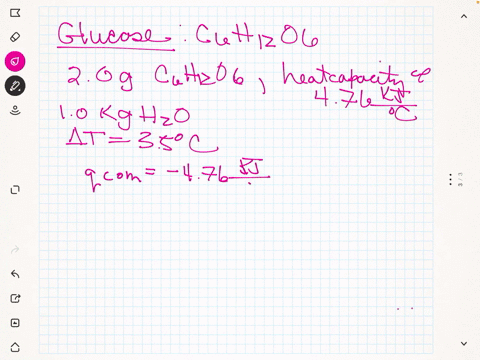 Glucose : C6H12O6
2.0g C6H12O6, heat capacity of
4.76 KJ/°C
1.0 Kg H2O
ΔT = 3.5°C
qcom = -4.76 KJ/